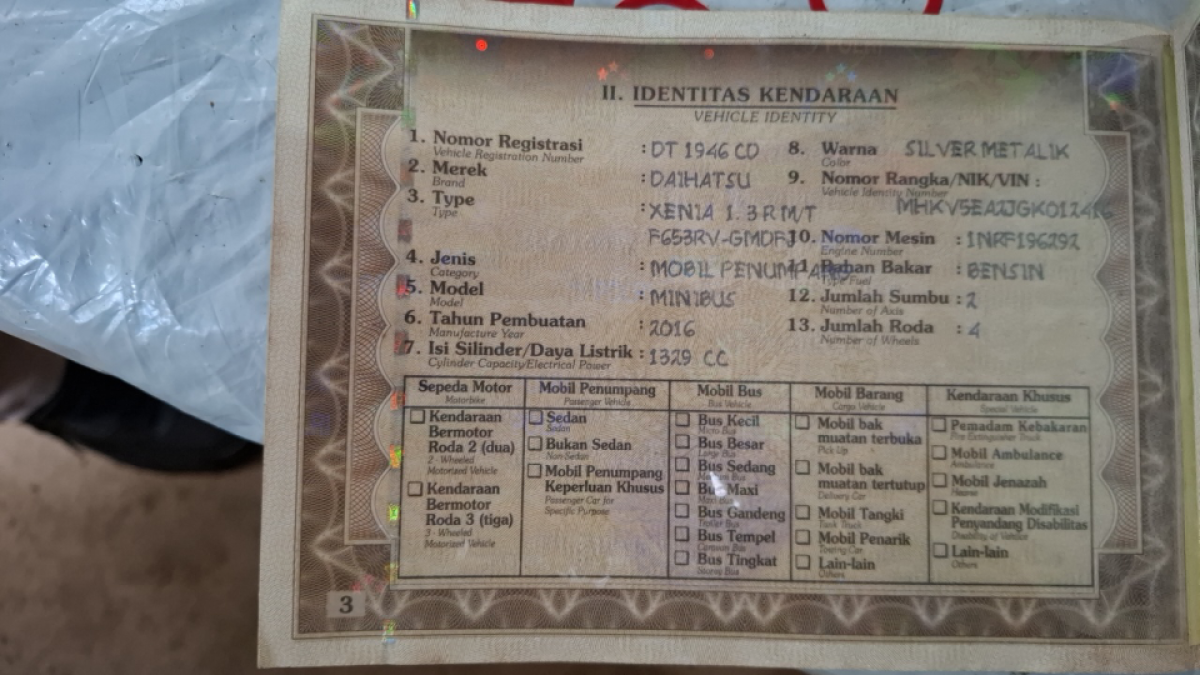 II. IDENTITAS KENDARAAN
VEHICLE IDENTITY
1. Nomor Registrasi : DT 1946 CD
Vehicle Registration Number
2. Merek : DAIHATSU
Brand
3. Type : XENIA 1.3 R M/T
Type
F653RV-GMDFJ
4. Jenis : MOBIL PENUMPANG
Category
5. Model : MINIBUS
Model
6. Tahun Pembuatan : 2016
Manufacture Year
7. Isi Silinder/Daya Listrik : 1329 CC
Cylinder Capacity/Electrical Power
8. Warna SILVER METALIK
Color
9. Nomor Rangka/NIK/VIN :
Vehicle Identity Number
10. Nomor Mesin : 1NRF196292
Engine Number
11. Bahan Bakar : BENSIN
Type Fuel
12. Jumlah Sumbu : 2
Number of Axis
13. Jumlah Roda : 4
Number of Wheels
Sepeda Motor
Motorbike
Kendaraan
Bermotor
Roda 2 (dua)
2 - Wheeled
Motorized Vehicle
Kendaraan
Bermotor
Roda 3 (tiga)
3 - Wheeled
Motorized Vehicle
Mobil Penumpang
Passenger Vehicle
Sedan
Sedan
Bukan Sedan
Non Sedan
Mobil Penumpang
Keperluan Khusus
Passenger Car for
Specific Purpose
Mobil Bus
Bus Vehicle
Bus Kecil
Micro Bus
Bus Besar
Large Bus
Bus Sedang
Bus Maxi
Maxi Bus
Bus Gandeng
Bus Tempel
Bus Tingkat
Mobil Barang
Cargo Vehicle
Mobil bak
muatan terbuka
Pick Up
Mobil bak
muatan tertutup
Delivery Car
Mobil Tangki
Tank Truck
Mobil Penarik
Towing Car
Lain-lain
Others
Kendaraan Khusus
Special Vehicle
Pemadam Kebakaran
Fire Extinguisher Truck
Mobil Ambulance
Ambulance
Mobil Jenazah
Hearse
Kendaraan Modifikasi
Penyandang Disabilitas
Lain-lain
Others
3